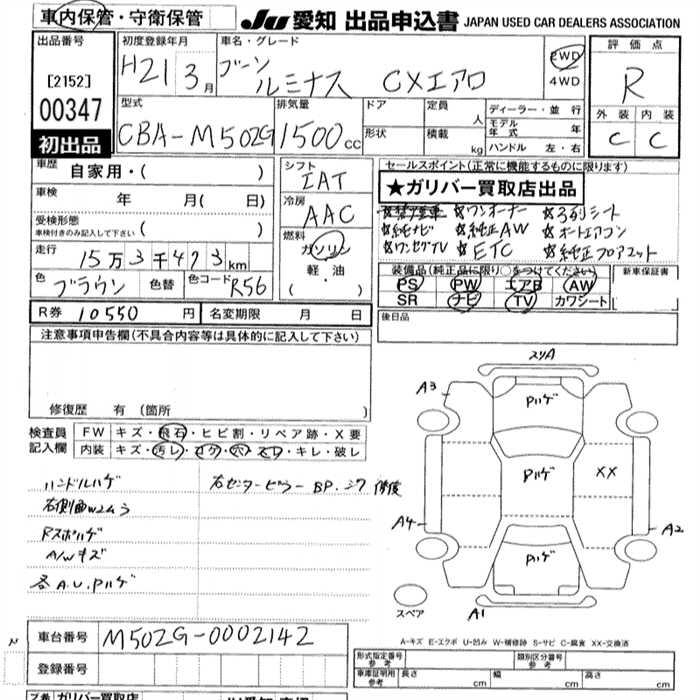 車内保管・守衛保管
JU 愛知 出品申込書 JAPAN USED CAR DEALERS ASSOCIATION
出品番号 [2152] 00347 初出品
初度登録年月 H21 3月
車名・グレード ブーン ルミナス CXエアロ
2WD 4WD
評価点 R
外装 C 内装 C
型式 CBA-M502G
排気量 1500cc
ドア 形状
定員 人 積載 kg
ディーラー・並行
モデル年式 年
ハンドル 左・右
車歴 自家用・( )
車検 年 月( 日)
受検形態 車検付きのみ記入して下さい ( )
走行 15万3千473km
色 ブラウン 色替 色コード R56
シフト IAT
冷房 AAC
燃料 ガソリン 軽油 ( ・ )
セールスポイント(正常に機能するものに限ります)
★ガリバー買取店出品
☆ワンオーナー ☆3列シート
☆純ナビ ☆純正AW ☆オートエアコン
☆ワンセグTV ☆ETC ☆純正フロアマット
装備品(純正品に限り○をつけてください) 新車保証書
PS PW エアB AW
SR ナビ TV カワシート
R券 10550円 名変期限 月 日
後日品
注意事項申告欄(不具合内容等は具体的に記入して下さい)
修復歴 有 (箇所 )
検査員記入欄
FW キズ・飛石・ヒビ割・リペア跡・X要
内装 キズ・汚レ・コゲ・穴・スレ・キレ・破レ
ハンドルハゲ
右センターピラー BP.シワ 修復
右側面W2ムラ
Rスポハゲ
A/Wキズ
各A.U.Pハゲ
スリA
A3
Pハゲ
Pハゲ
XX
A4
A2
Pハゲ
スペア
A1
車台番号 M502G-0002142
登録番号
A-キズ E-エクボ U-凹み W-補修跡 S-サビ C-腐食 XX-交換済
形式指定番号 参考
類別区分番号 参考
車庫証明用 参考 長さ cm 幅 cm 高さ cm
ガリバー買取店